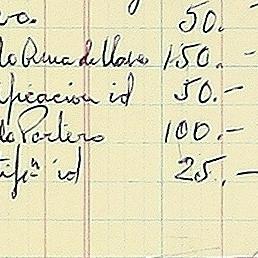 vo. 50.-
do Ama de llaves 150.-
ificacion id 50.-
do Portero 100.-
tifⁿ id 25.-